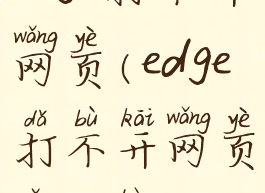 wǎng yè
网页(edge
dǎ bù kāi wǎng yè
打不开网页